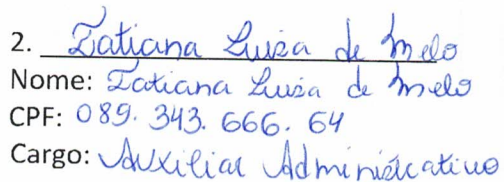 2. Tatiana Luiza de Melo
Nome: Tatiana Luiza de Melo
CPF: 089. 343. 666. 64
Cargo: Auxiliar Administrativo